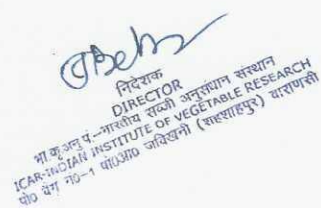 निदेशक
DIRECTOR
भा.कृ.अनु.प.–भारतीय सब्जी अनुसंधान संस्थान
ICAR-INDIAN INSTITUTE OF VEGETABLE RESEARCH
पो० बैग नं०–1 पो०आ० जक्खिनी (शाहंशाहपुर) वाराणसी